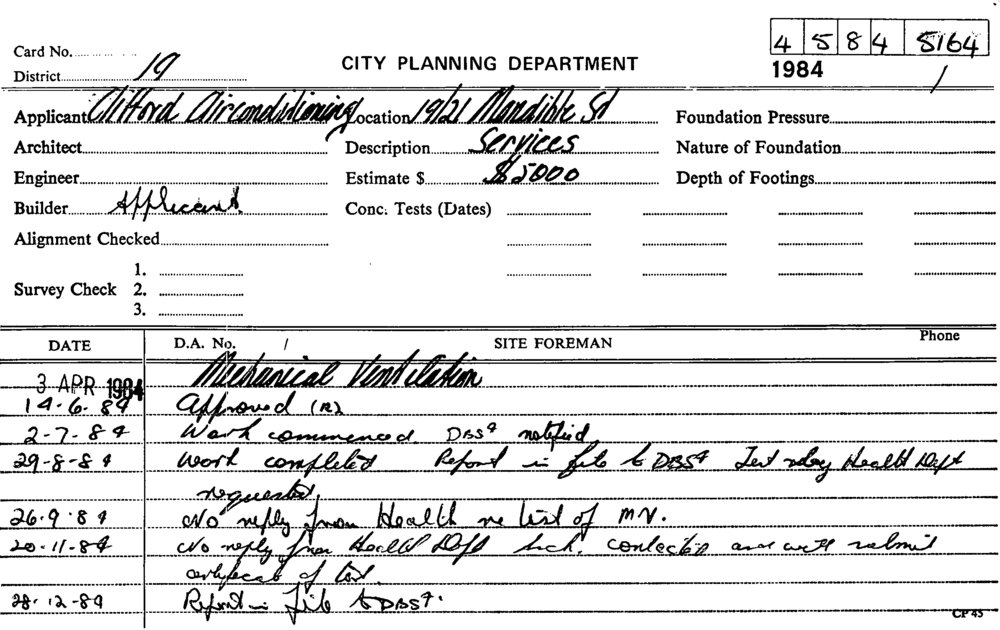 4 5 8 4 5164
Card No.
District 19
CITY PLANNING DEPARTMENT
1984 /
Applicant Clifford Airconditioning Location 19/21 Mandible St Foundation Pressure
Architect Description Services Nature of Foundation
Engineer Estimate $ $5000 Depth of Footings
Builder Applicant Conc. Tests (Dates)
Alignment Checked
1.
Survey Check 2.
3.
DATE D.A. No. / SITE FOREMAN Phone
3 APR 1984 Mechanical Ventilation
14-6-84 Approved (R)
2-7-84 Work commenced DBS4 notified
29-8-84 Work completed Report in file to DBS4 Test Health Dept
requested.
26.9.84 No reply from Health re test of M.V.
20-11-84 No reply from Health Dept contacted and will submit
certificate of test.
28-12-84 Report in file to DBS4.
CP 45